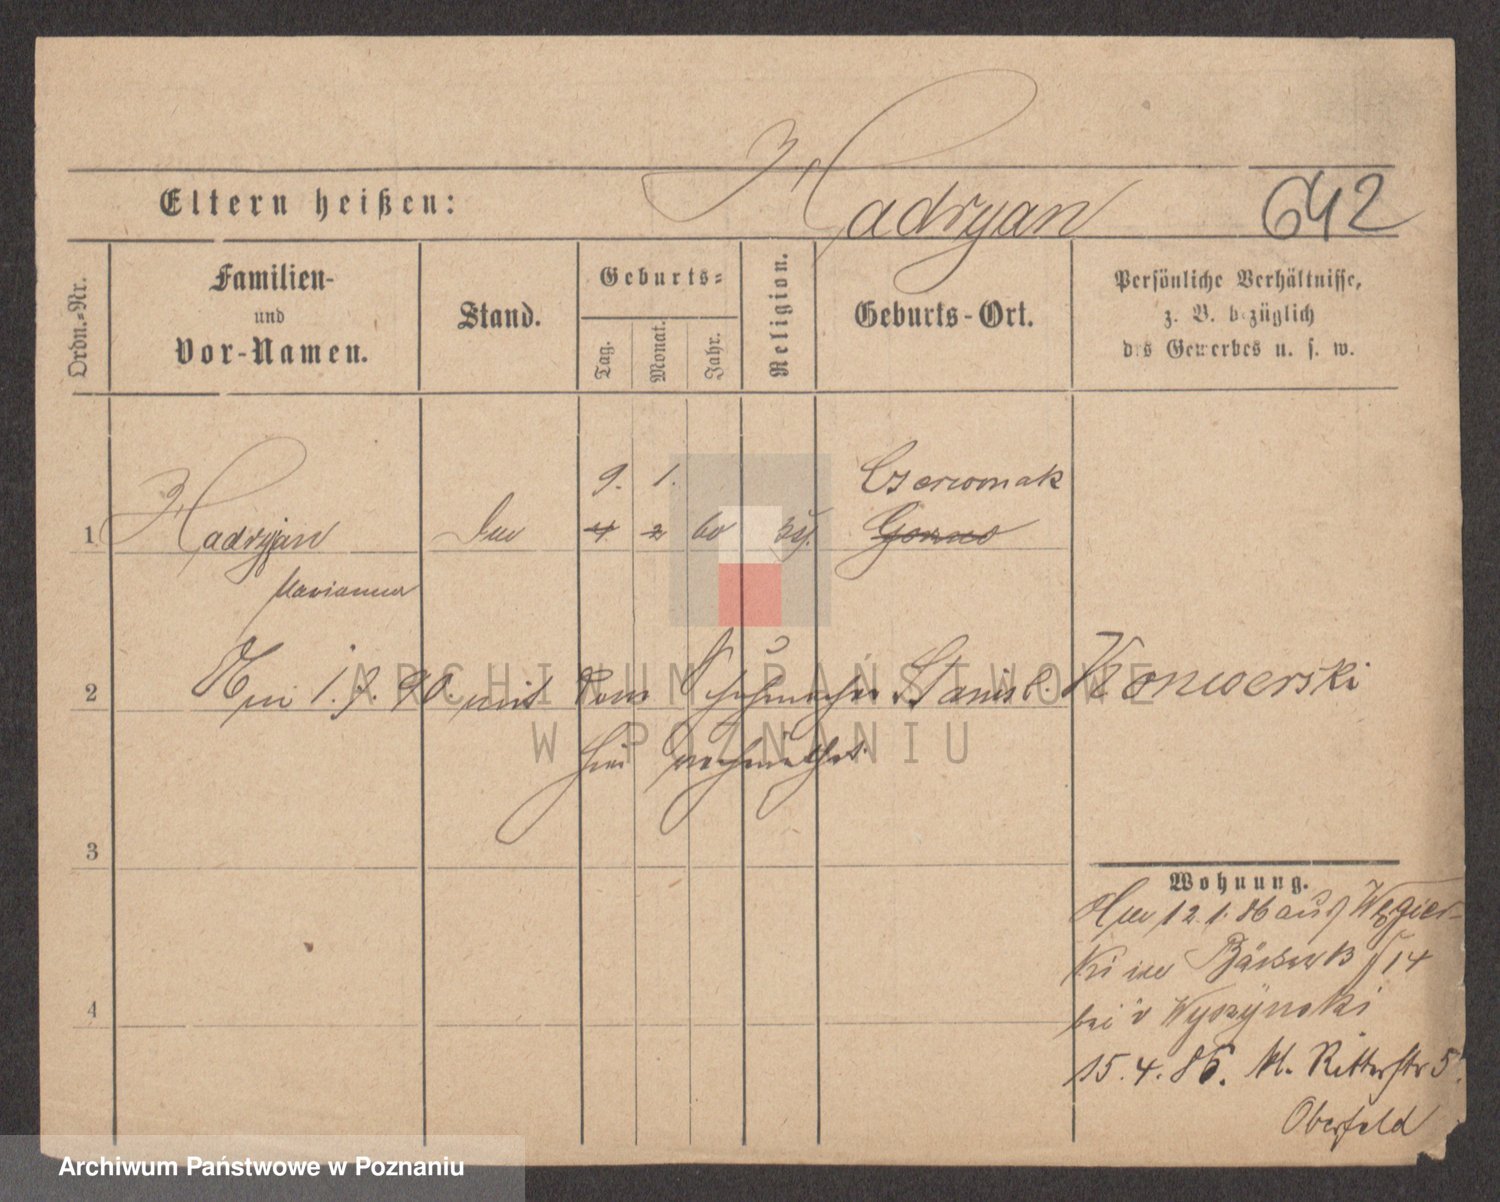 Hadryan
642
Eltern heißen:
Ordn.-Nr.
Familien-
und
Vor-Namen.
Stand.
Geburts-
Tag.
Monat.
Jahr.
Religion.
Geburts-Ort.
Persönliche Verhältnisse,
z. B. bezüglich
des Gewerbes u. s. w.
9. 1. Czerwonak
1 Hadryjan 4 2 60
Marianna
2 Am 1. 7. 90. mit dem Schuhmacher Stanisl. Konwerski
hier verheirathet
3
Wohnung.
12. 1. 86 aus Węgier-
ki
14
bei Wyszynski
4
15. 4. 86. Kl. Ritterstr 5
Oberfeld
ARCHIWUM PAŃSTWOWE
W POZNANIU
Archiwum Państwowe w Poznaniu